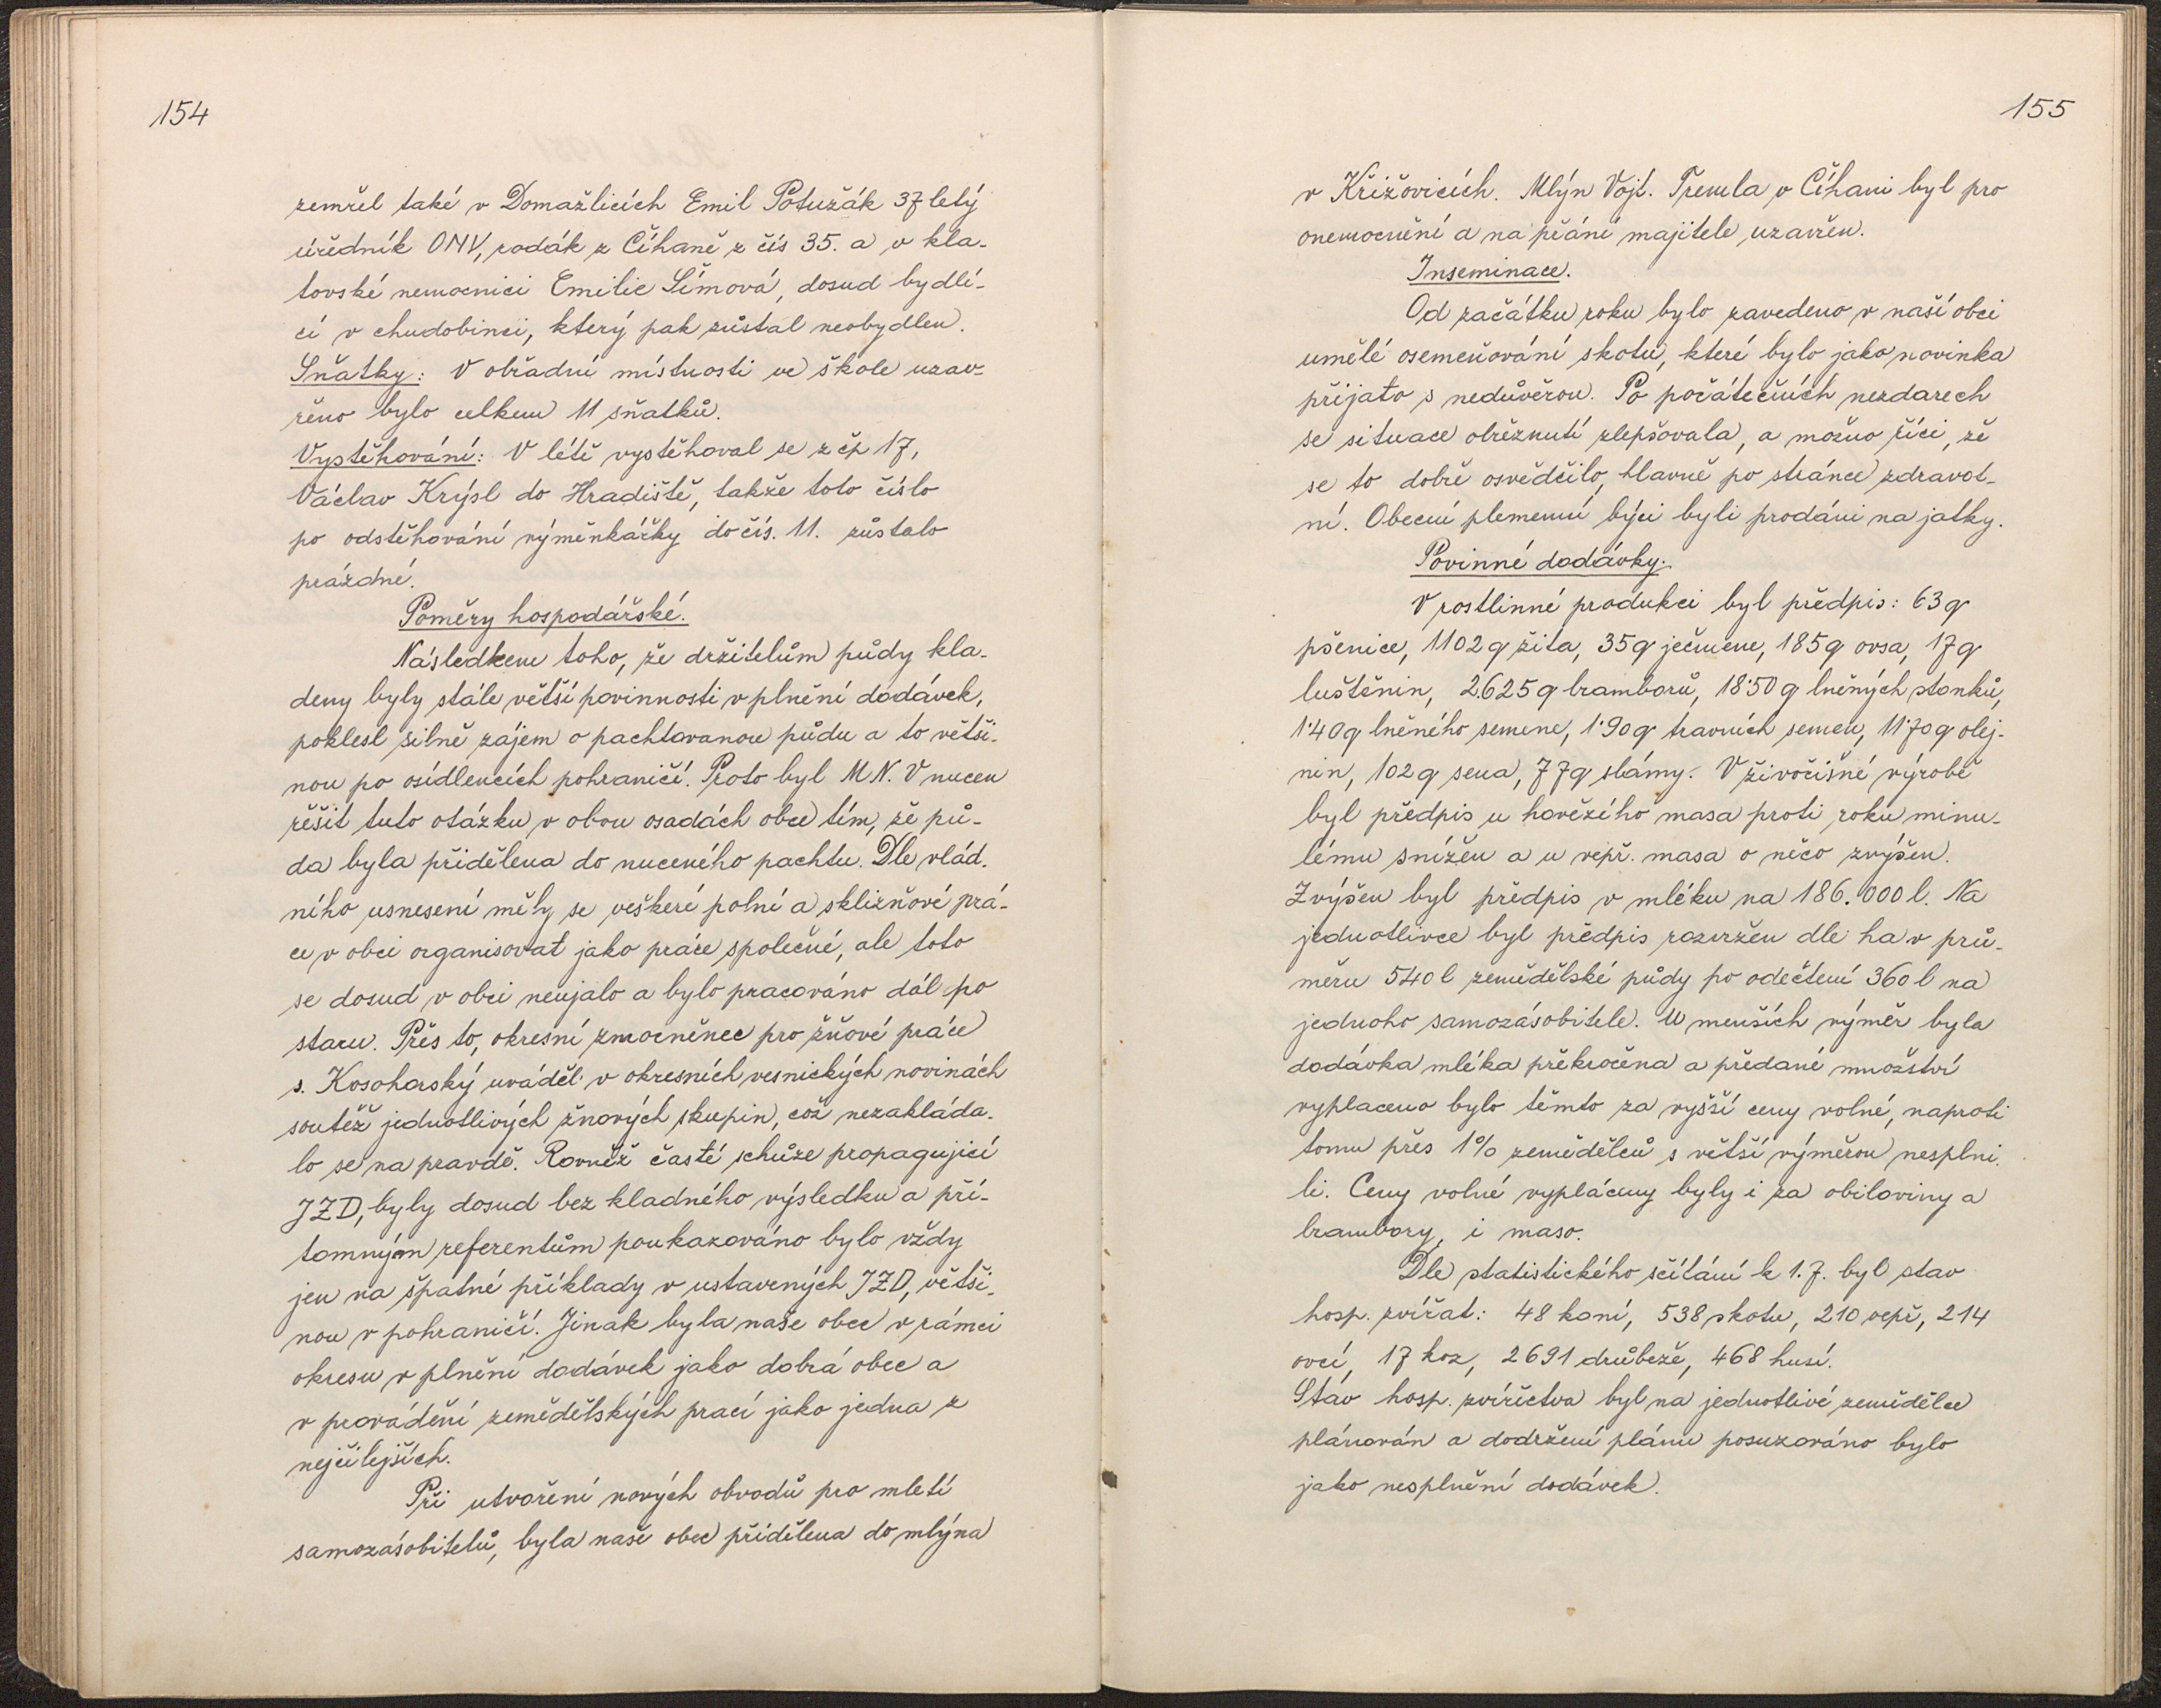 154
zemřel také v Domažlicích Emil Potužák 37 letý
úředník ONV, rodák z Číhaně z čís 35. a v kla-
tovské nemocnici Emilie Šímová, dosud bydlí-
cí v chudobinci, který pak zůstal neobydlen.
Sňatky: V obřadní místnosti ve škole uzav-
řeno bylo celkem 11 sňatků.
Vystěhování: V létě vystěhoval se z čp 17,
Václav Krýsl do Hradiště, takže toto číslo
po odstěhování výměnkářky do čís. 11. zůstalo
prázdné.
Poměry hospodářské.
Následkem toho, že držitelům půdy kla-
deny byly stále větší povinnosti v plnění dodávek,
poklesl silně zájem o pachtovanou půdu a to větši-
nou po osídlencích pohraničí. Proto byl M.N.V nucen
řěšit tuto otázku v obou osadách obce tím, že pů-
da byla přidělena do nuceného pachtu. Dle vlád-
ního usnesení měly se veškeré polní a sklizňové prá-
ce v obci organisovat jako práce společné, ale toto
se dosud v obci neujalo a bylo pracováno dál po
staru. Přes to, okresní zmocněnec pro žňové práce
s. Kosohorský uváděl v okresních vesnických novinách
soutěž jednotlivých žnových skupin, což nezakláda-
lo se na pravdě. Rovněž časté schůze propagující
JZD, byly dosud bez kladného výsledku a pří-
tomným referentům poukazováno bylo vždy
jen na špatné příklady v ustavených JZD, větši-
nou v pohraničí. Jinak byla naše obec v rámci
okresu v plnění dodávek jako dobrá obec a
v provádění zemědělských prací jako jedna z
nejčilejších.
Při utvoření nových obvodů pro mletí
samozásobitelů, byla naše obec přidělena do mlýna
155
v Křižovicích. Mlýn Vojt. Třemla v Číhani byl pro
onemocnění a na přání majitele uzavřen.
Inseminace.
Od začátku roku bylo zavedeno v naší obci
umělé osemeňování skotu, které bylo jako novinka
přijato s nedůvěrou. Po počátečních nezdarech
se situace obřeznutí zlepšovala, a možno říci, že
se to dobře osvědčilo, hlavně po stránce zdravot-
ní. Obecní plemenní býci byli prodáni na jatky.
Povinné dodávky.
V rostlinné produkci byl předpis: 63 q
pšenice, 1102 q žita, 35 q ječmene, 185 q ovsa, 17 q
luštěnin, 2.625 q bramborů, 18·50 q lněných stonků,
1·40 q lněného semene, 1·90 q travních semen, 11·70 q olej-
nin, 102 q sena, 77 q slámy. V živočišné výrobě
byl předpis u hovězího masa proti roku minu-
lému snížen a u vepř. masa o něco zvýšen.
Zvýšen byl předpis v mléku na 186.000 l. Na
jednotlivce byl předpis rozvržen dle ha v prů-
měru 540 l zemědělské půdy po odečtení 360 l na
jednoho samozásobitele. U menších výměr byla
dodávka mléka překročena a předané množství
vyplaceno bylo těmto za vyšší ceny volné, naproti
tomu přes 1% zemědělců s větší výměrou nesplni-
li. Ceny volné vypláceny byly i za obiloviny a
brambory, i maso.
Dle statistického sčítání k 1.7. byl stav
hosp. zvířat: 48 koní, 538 skotu, 210 vepř, 214
ovcí, 17 koz, 2691 drůbeže, 468 husí.
Stav hosp. zvířectva byl na jednotlivé zemědělce
plánován a dodržení plánu posuzováno bylo
jako nesplnění dodávek.